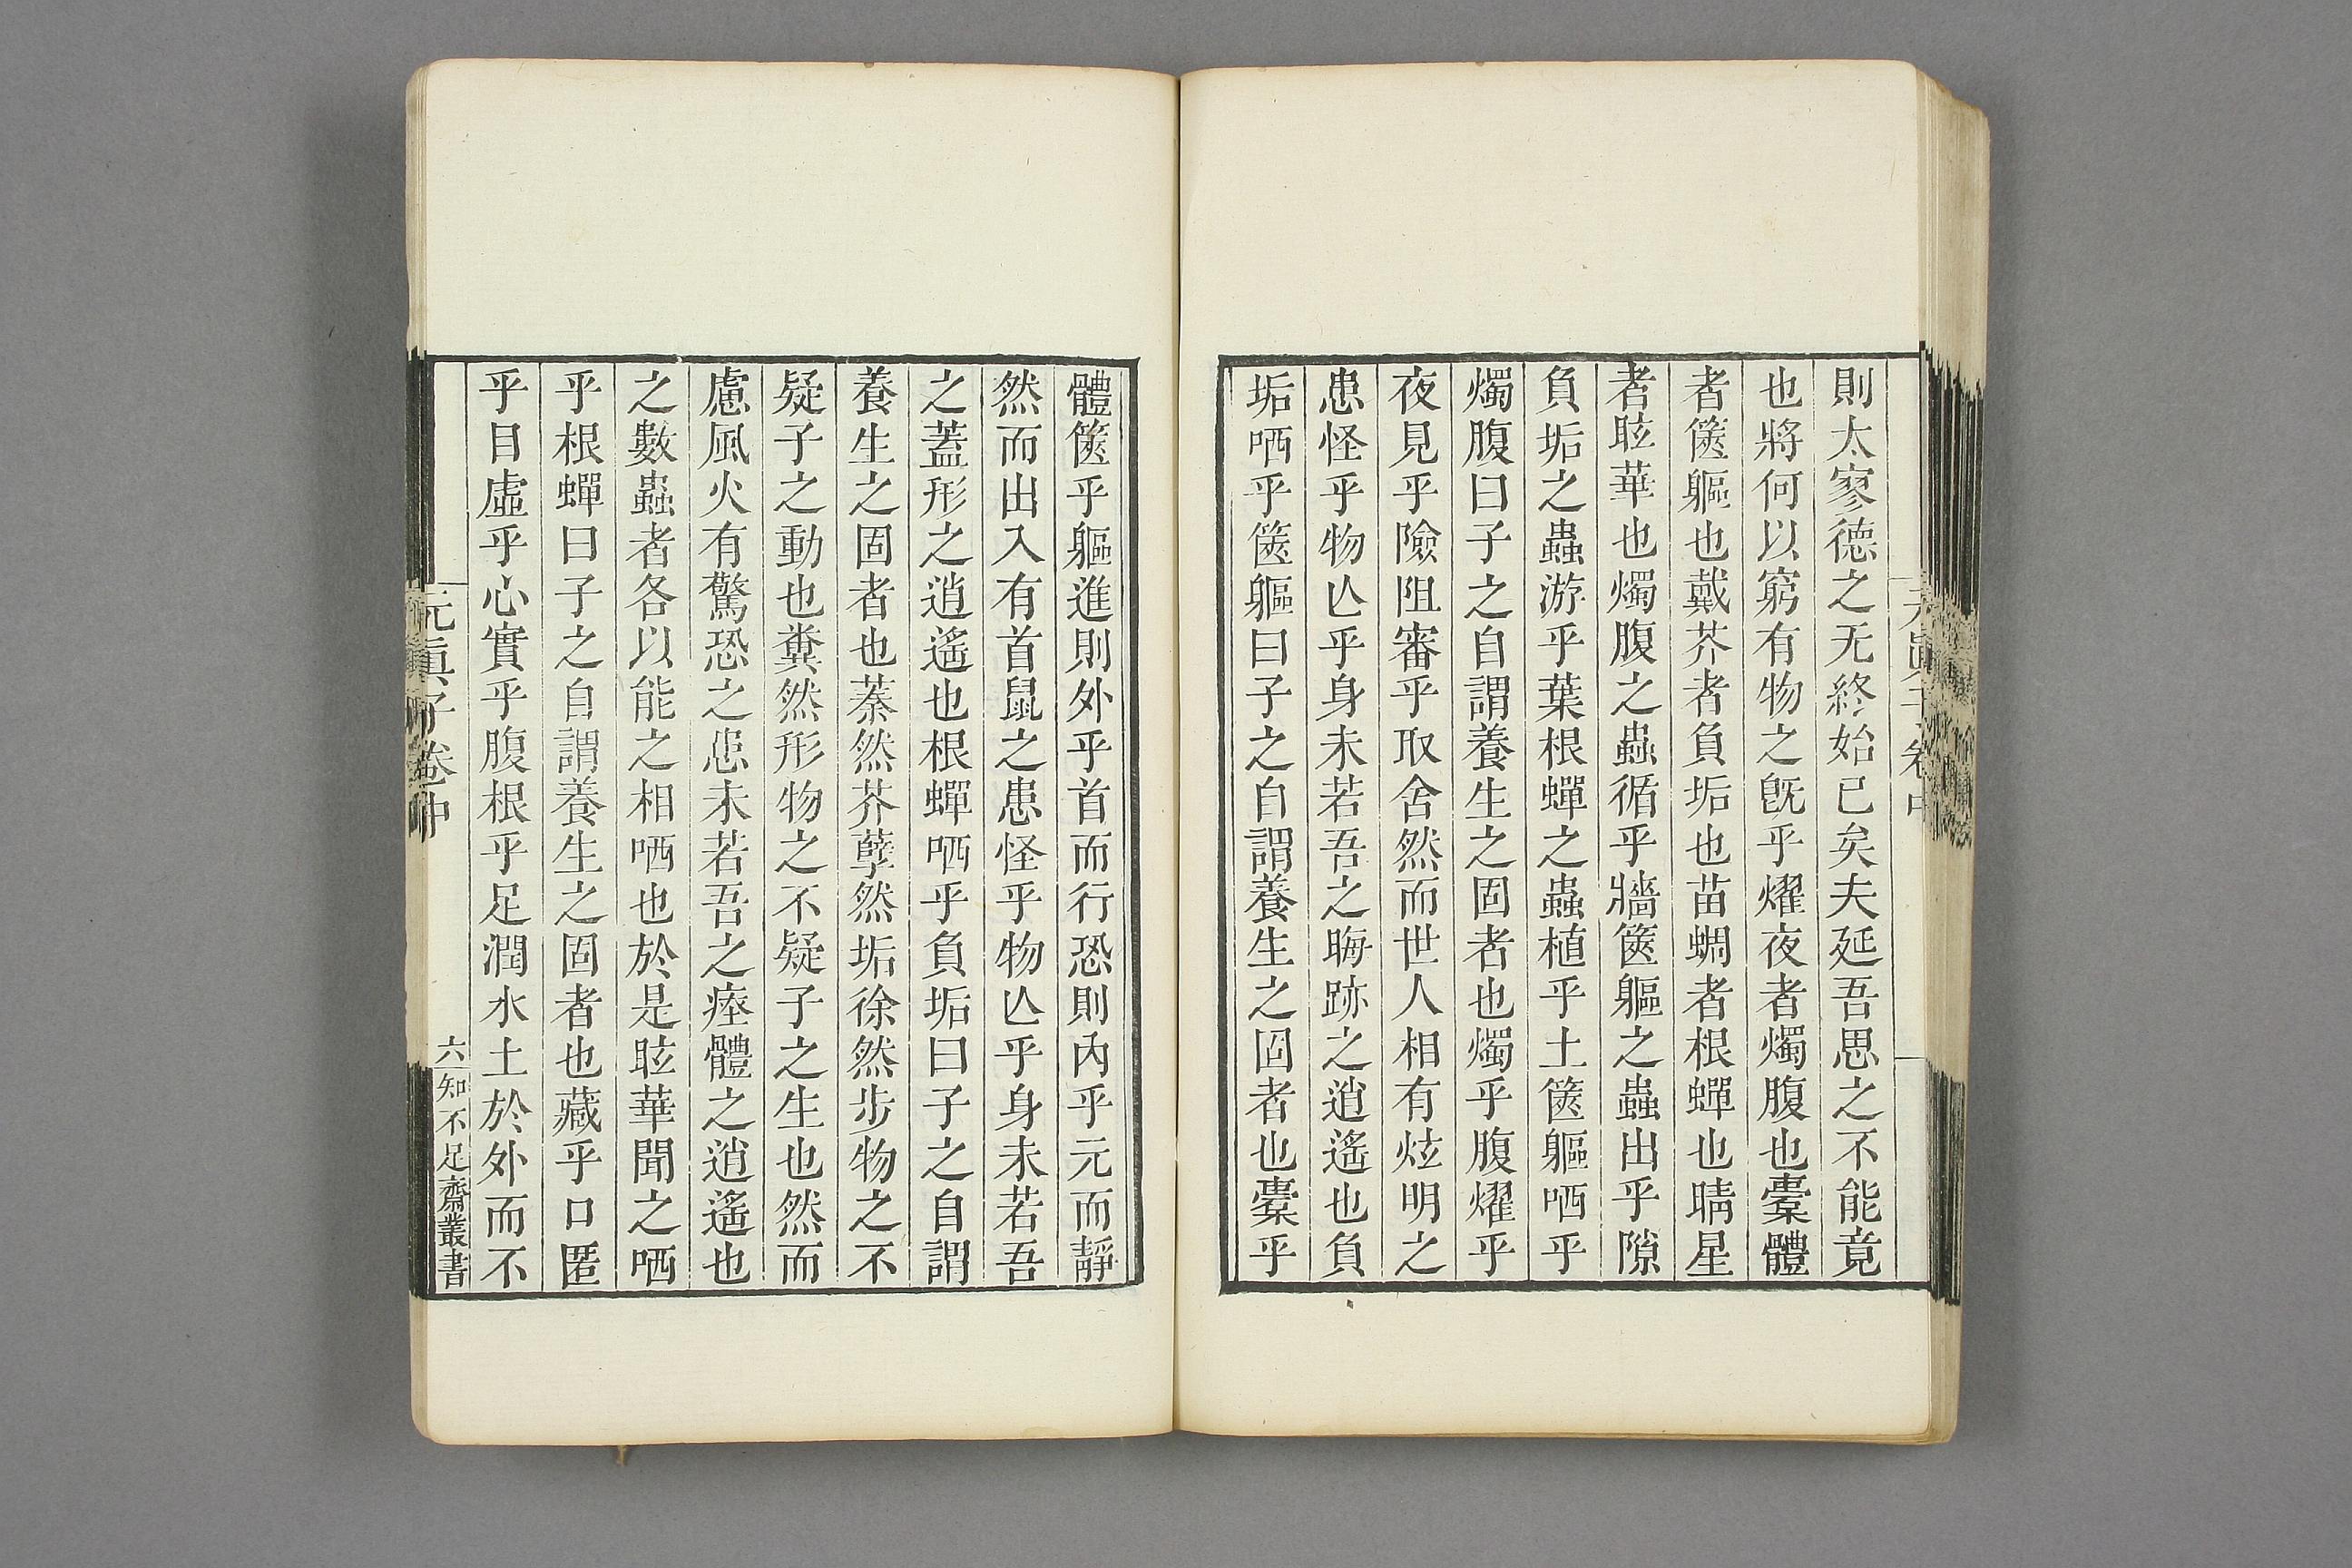 則太寥德之无終始已矣夫延吾思之不能竟
也將何以窮有物之旣乎燿夜者燭腹也橐體
者篋軀也戴芥者負垢也苗蜩者根蟬也睛星
者眩華也燭腹之蟲循乎牆篋軀之蟲出乎隙
負垢之蟲游乎葉根蟬之蟲植乎土篋軀哂乎
燭腹曰子之自謂養生之固者也燭乎腹燿乎
夜見乎險阻審乎取舍然而世人相有炫明之
患怪乎物亾乎身未若吾之晦跡之逍遙也負
垢哂乎篋軀曰子之自謂養生之固者也橐乎
體篋乎軀進則外乎首而行恐則內乎元而靜
然而出入有首鼠之患怪乎物亾乎身未若吾
之蓋形之逍遙也根蟬哂乎負垢曰子之自謂
養生之固者也蓁然芥孽然垢徐然步物之不
疑子之動也糞然形物之不疑子之生也然而
慮風火有驚恐之患未若吾之瘞體之逍遙也
之數蟲者各以能之相哂也於是眩華聞之哂
乎根蟬曰子之自謂養生之固者也藏乎口匿
乎目虛乎心實乎腹根乎足潤水土於外而不
元眞子卷中
六
知不足齋叢書